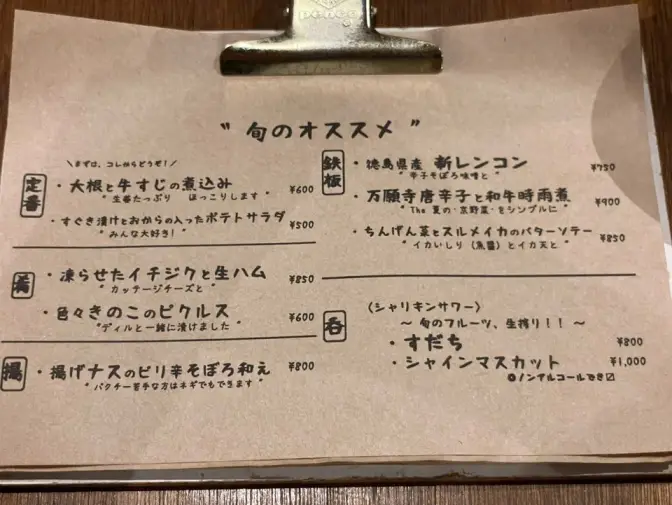 " 旬のオススメ "
\ まずは、コレからどうぞ！ /
定番
・大根と牛すじの煮込み ¥600
"生姜たっぷり ほっこりします"
・すぐき漬けとおからの入ったポテトサラダ ¥500
"みんな大好き！"
肴
・凍らせたイチジクと生ハム ¥850
"カッテージチーズと"
・色々きのこのピクルス ¥600
"ディルと一緒に漬けました"
揚
・揚げナスのピリ辛そぼろ和え ¥800
"パクチー苦手な方はネギでもできます"
鉄板
・徳島県産 新レンコン ¥750
"辛子そぼろ味噌と"
・万願寺唐辛子と和牛時雨煮 ¥900
"The 夏の・京野菜・をシンプルに"
・ちんげん菜とスルメイカのバターソテー ¥850
"イカいしり（魚醤）とイカ天と"
呑
（シャリキンサワー）
～ 旬のフルーツ、生搾り！！ ～
・すだち ¥800
・シャインマスカット ¥1,000
◎ノンアルコールでき〼